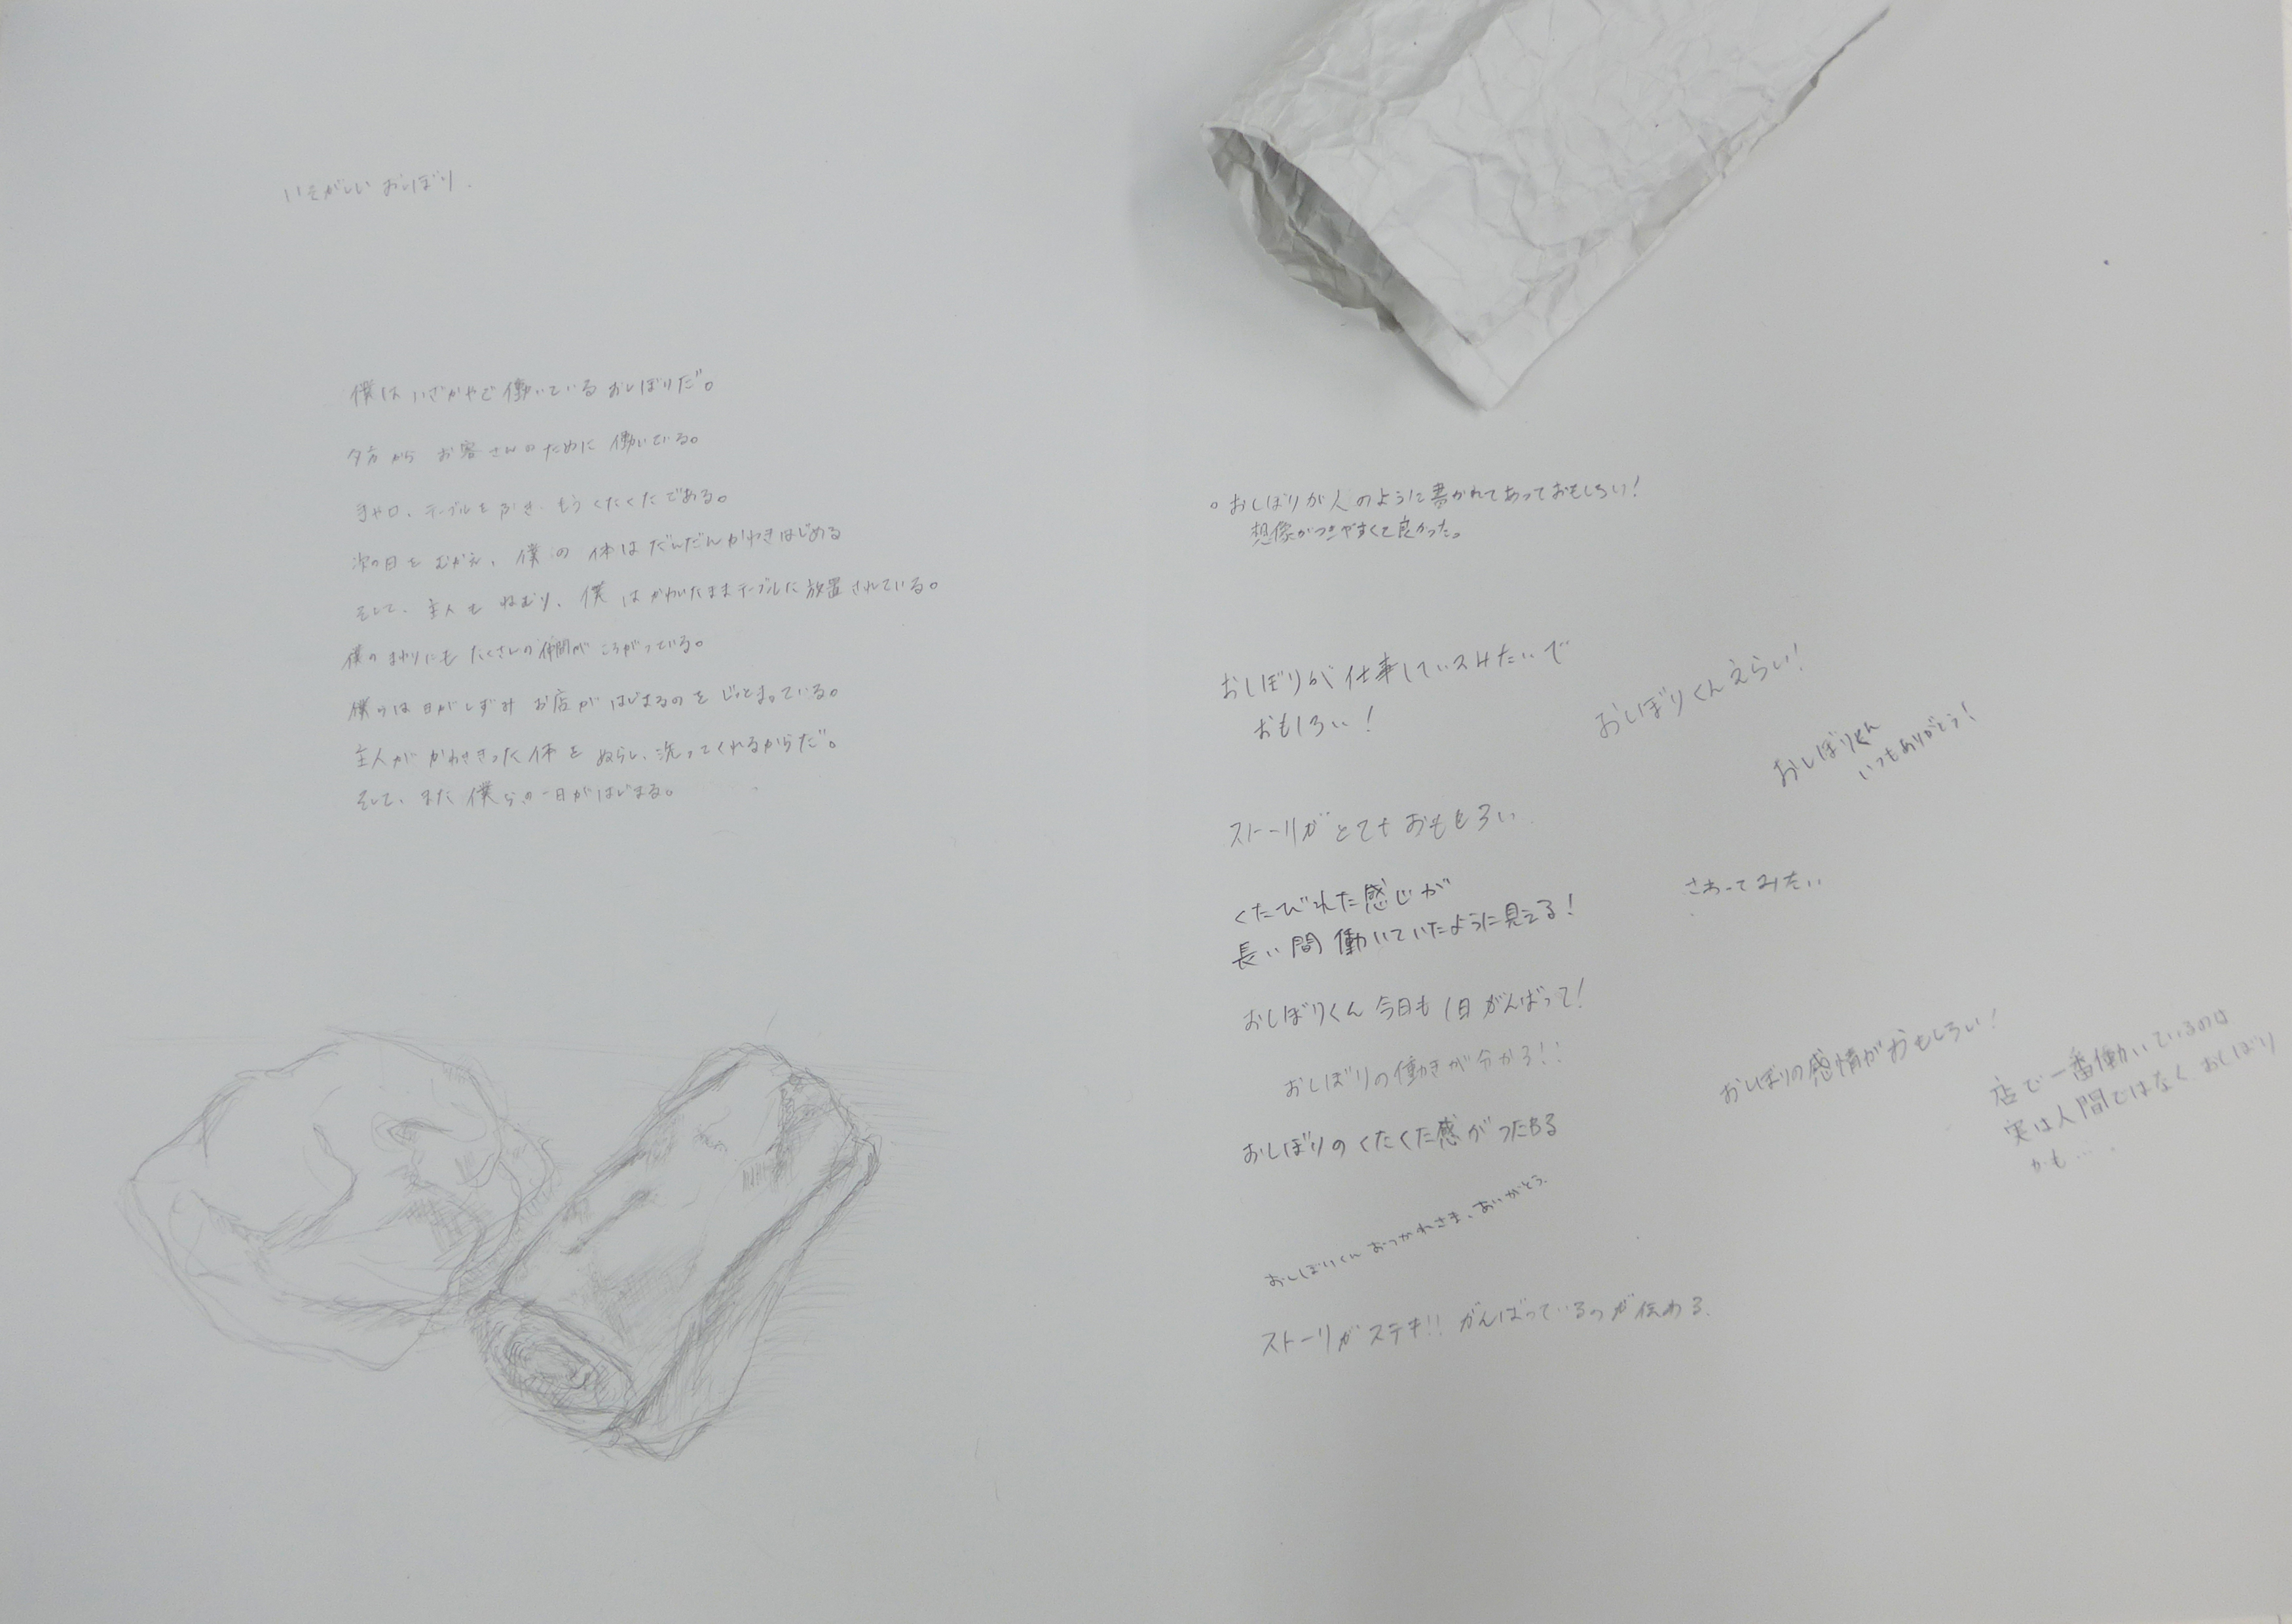 いそがしい おしぼり.
僕は いざかやで 働いている おしぼりだ。
夕方から お客さんのために 働いている。
手や口、テーブルを ふき、もう くたくたである。
次の日を むかえ、僕の 体は だんだんかわきはじめる
そして、主人も ねむり、僕は かわいたままテーブルに 放置されている。
僕の まわりにも たくさんの 仲間が ころがっている。
僕らは 日がしずみ お店が はじまるのを じっとまっている。
主人が かわききった 体を ぬらし、洗ってくれるからだ。
そして、また 僕らの一日がはじまる。
○おしぼりが人のように書かれてあっておもしろい!
想像がつきやすくて良かった。
おしぼりが 仕事しているみたいで
おもしろい!
おしぼりくんえらい!
おしぼりくん
いつもありがとう!
ストーリが とても おもしろい
くたびれた感じが
長い間 働いていたように見える!
さわってみたい
おしぼりくん 今日も 1日 がんばって!
おしぼりの働きが分かる!!
おしぼりの感情がおもしろい!
店で一番働いているのは
実は人間ではなく おしぼり
かも….
おしぼりの くたくた感が つたわる
おしぼりくん おつかれさま、ありがとう.
ストーリが ステキ!! がんばっているのが 伝わる.